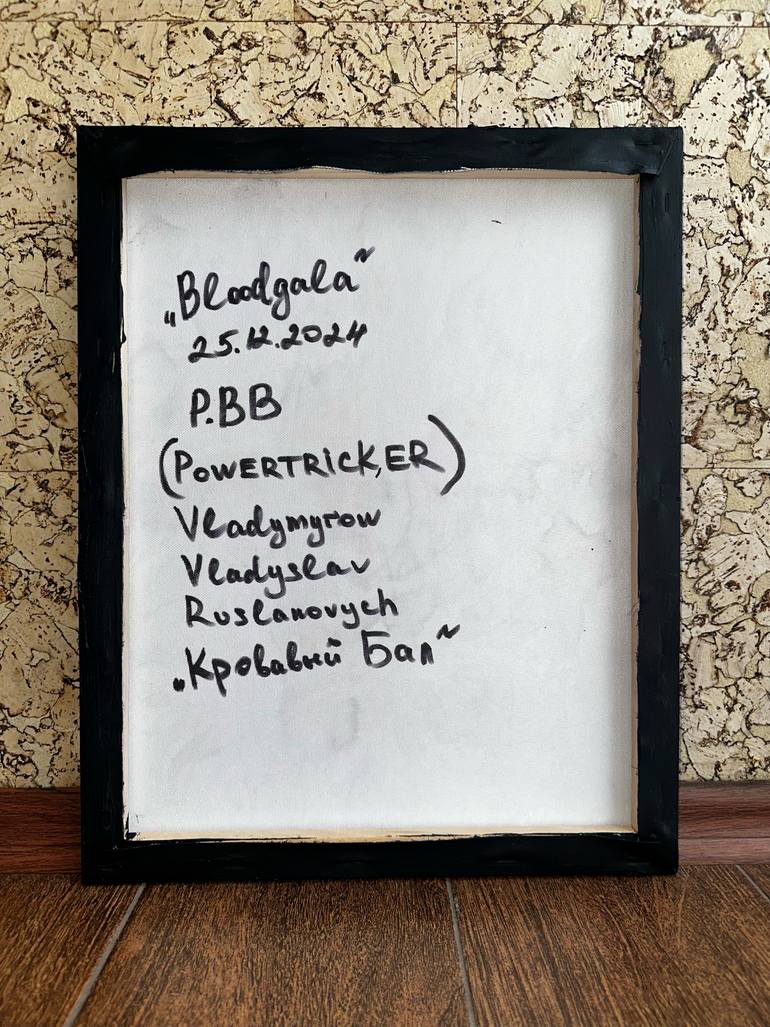 „Bloodgala”
25.12.2024
P.BB
(POWERTRICK,ER)
Vladymyrow
Vladyslav
Ruslanovych
„Кровавый Бал”